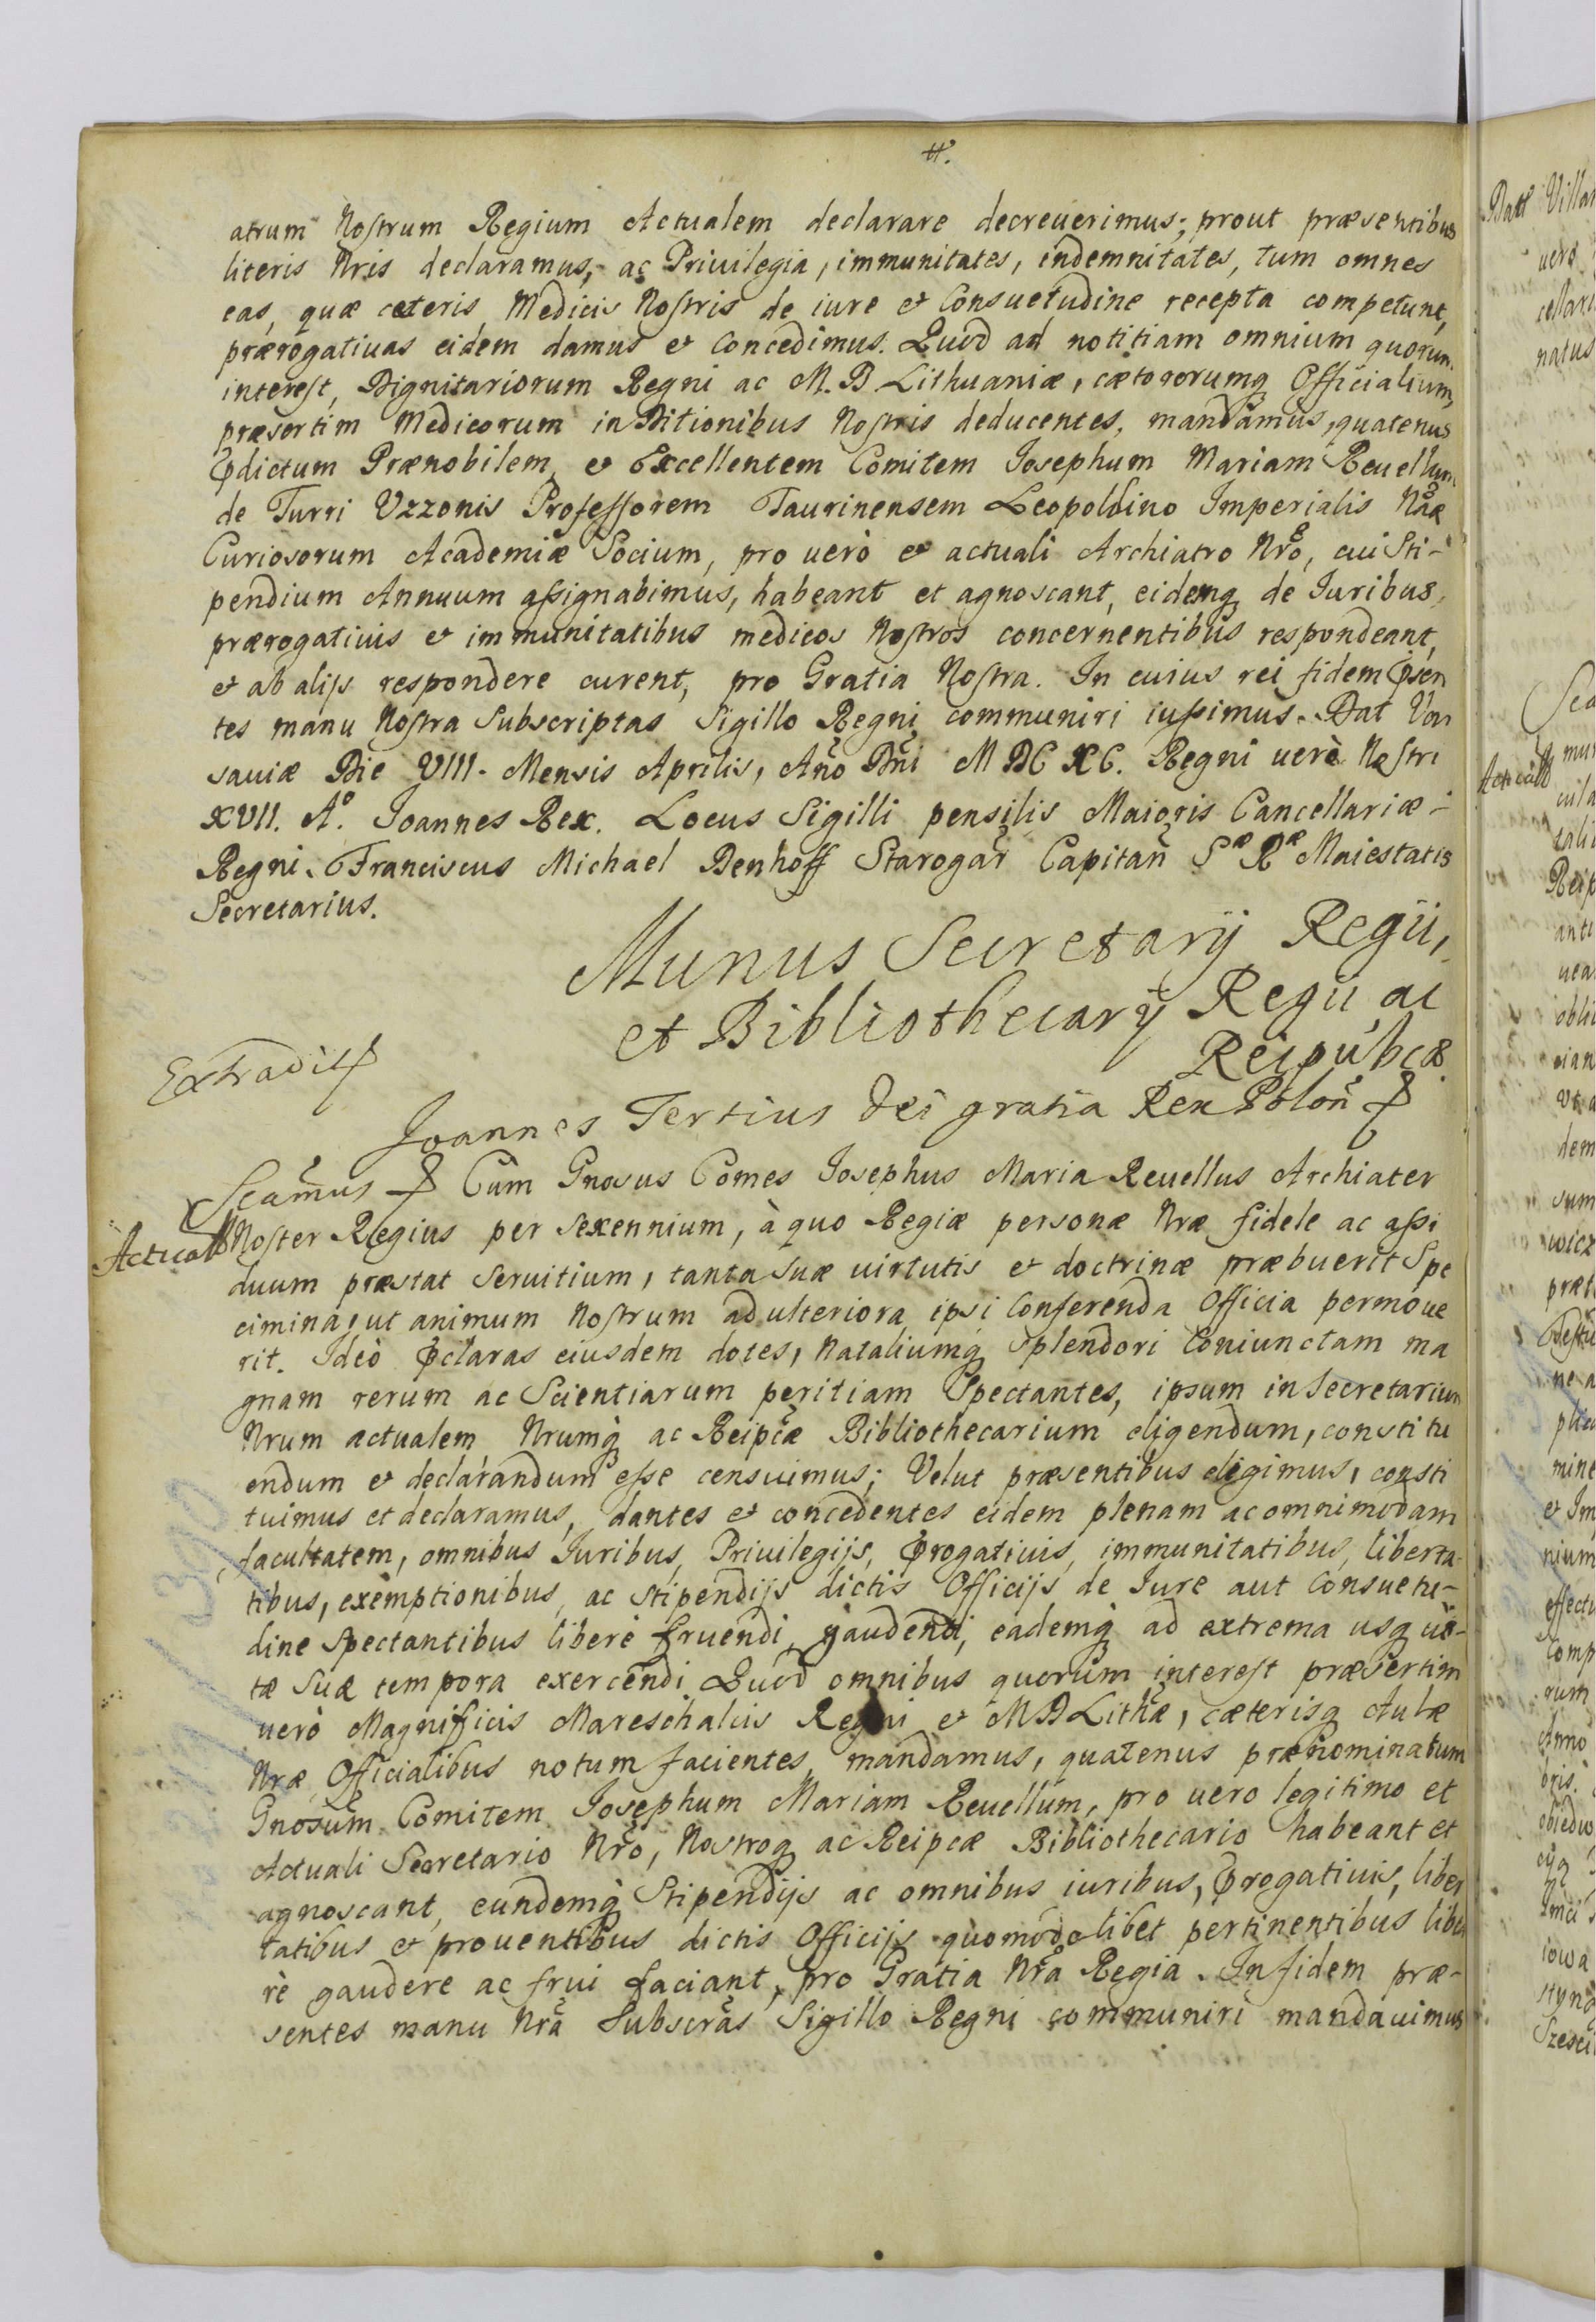 #.
atrum Nostrum Regium Actualem declarare decreuerimus; prout præsentibus
literis Nris declaramus, ac Priuilegia, immunitates, indemnitates, tum omnes
eas, quæ cæteris Medicis Nostris de iure et Consuetudine recepta competunt,
prærogatiuas eidem damus et Concedimus. Quod ad notitiam omnium quorum
interest, Dignitariorum Regni ac M. D. Lithuaniæ, cæterorumq Officialium,
præsertim Medicorum in Ditionibus Nostris deducentes, mandamus, quatenus
Prædictum Prænobilem et Excellentem Comitem Iosephum Mariam Reuellum
de Turri Uzzonis Professorem Taurinensem Leopoldino Imperialis Naæ
Curiosorum Academiæ Socium, pro uerò et actuali Archiatro Nrõ, cui Sti-
pendium Annuum assignabimus, habeant et agnoscant, eidemq de Iuribus,
prærogatiuis et immunitatibus medicos Nostros concernentibus respondeant,
et ab alijs respondere curent, pro Gratia Nostra. In cuius rei fidem præsen
tes manu Nostra Subscriptas Sigillo Regni communiri iussimus. Dat Var
sauiæ Die VIII. Mensis Aprilis, Año Dñi MDCXC. Regni uerò Nostri
XVII. Aº. Joannes Rex. Locus Sigilli pensilis Maioris Cancellariæ
Regni. Franciscus Michael Denhoff Starogar̃ Capitañ Sæ Ræ Maiestatis
Secretarius.
Munus Secretarij Regij,
et Bibliothecarij Regij ac
Reipubcæ.
Extradit
Joannes Tertius Dei gratia Rex Poloñ
Scamus Cum Gnosus Comes Iosephus Maria Reuellus Archiater
Actualis Noster Regius per sexennium, à quo Regiæ personæ Nræ fidele ac assi
duum præstat Seruitium, tanta suæ uirtutis et doctrinæ præbuerit Spe
cimina, ut animum Nostrum ad ulteriora ipsi Conferenda Officia permoue
rit. Ideò Præclaras eiusdem dotes, Nataliumq Splendori Coniunctam ma
gnam rerum ac Scientiarum peritiam Spectantes, ipsum in Secretarium
Nrum actualem Nrumq ac Reipcæ Bibliothecarium eligendum, constitu
endum et declarandum esse censuimus; Velut præsentibus eligimus, consti
tuimus et declaramus, dantes et concedentes eidem plenam ac omnimodam
facultatem, omnibus Iuribus, Priuilegijs, Prærogatiuis, immunitatibus, liberta-
tibus, exemptionibus, ac Stipendijs dictis Officijs de Iure aut Consuetu-
dine Spectantibus liberè fruendi, gaudendi, eademq ad extrema usq ui-
tæ suæ tempora exercendi Quod omnibus quorum interest præsertim
uerò Magnificis Mareschalcis Regni et MD Lithæ, cæterisq Aulæ
Nræ Officialibus notum facientes, mandamus, quatenus prænominatum
Gnosum Comitem Iosephum Mariam Reuellum, pro uero legitimo et
Actuali Secretario Nrõ, Nostroq ac Reipcæ Bibliothecario habeant et
agnoscant, eundemq Stipendijs ac omnibus iuribus, Prærogatiuis, liber
tatibus et prouentibus dictis Officijs quomodolibet pertinentibus libe
rè gaudere ac frui faciant, pro Gratia Nrã Regia. In fidem præ-
sentes manu Nrã Subscrãs Sigillo Regni communiri mandauimus